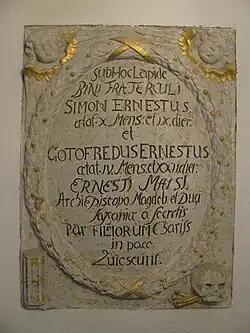 Sub Hoc Lapide
BINI FRATERCULI
SIMON ERNESTUS
ætat. X. Mens: et IX. dier.
et
GOTOFREDUS ERNESTUS
ætat. IV. Mens. et XX dier:
ERNESTI
ArchiEpiscopo Magdeb. et Duci
Saxoniæ a
Par FILIORUM Chariss
in pace
Quiescunt.